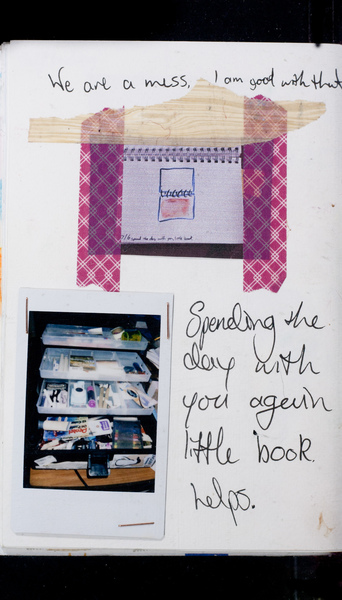 We are a mess, I am good with that
Spending the
day with
you again
little book
helps.